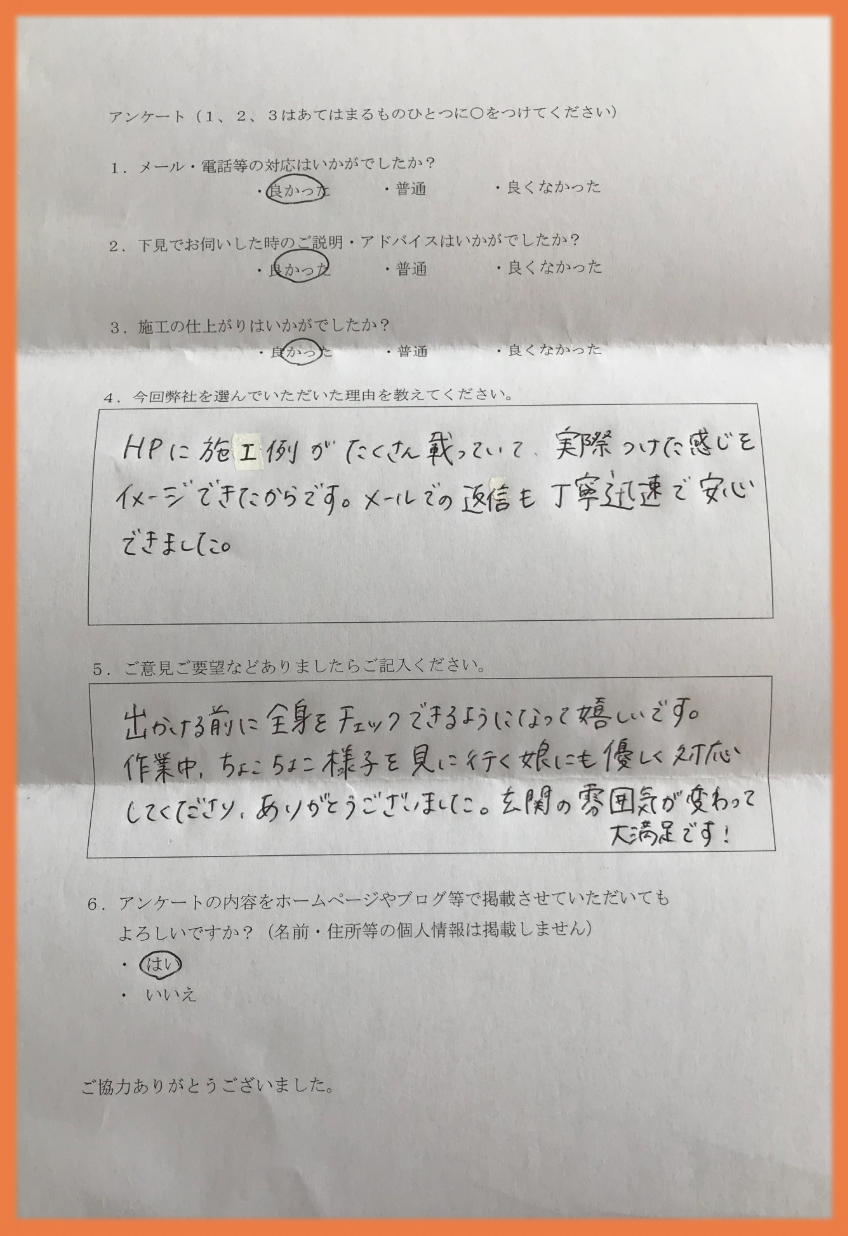 アンケート（１、２、３はあてはまるものひとつに○をつけてください）
１．メール・電話等の対応はいかがでしたか？
・良かった ・普通 ・良くなかった
２．下見でお伺いした時のご説明・アドバイスはいかがでしたか？
・良かった ・普通 ・良くなかった
３．施工の仕上がりはいかがでしたか？
・良かった ・普通 ・良くなかった
４．今回弊社を選んでいただいた理由を教えてください。
HPに施工例がたくさん載っていて、実際つけた感じを
イメージできたからです。メールでの返信も丁寧迅速で安心
できました。
５．ご意見ご要望などありましたらご記入ください。
出かける前に全身をチェックできるようになって嬉しいです。
作業中、ちょこちょこ様子を見に行く娘にも優しく対応
してくださり、ありがとうございました。玄関の雰囲気が変わって
大満足です！
６．アンケートの内容をホームページやブログ等で掲載させていただいても
よろしいですか？（名前・住所等の個人情報は掲載しません）
・ はい
・ いいえ
ご協力ありがとうございました。